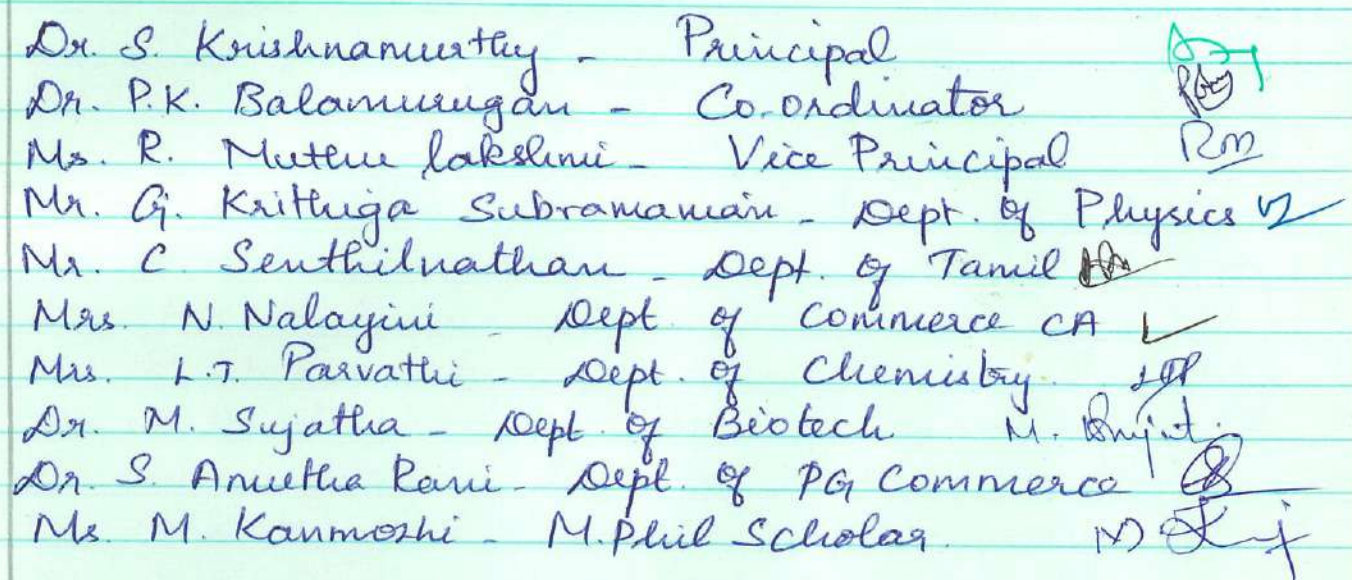 Dr. S. Krishnamurthy - Principal
Dr. P.K. Balamurugan - Co-ordinator
Ms. R. Muthu lakshmi - Vice Principal Rm
Mr. G. Krithiga Subramanian - Dept. of Physics
Mr. C. Senthilnathan - Dept. of Tamil
Mrs. N. Nalayini - Dept. of Commerce CA
Mrs. L.T. Parvathi - Dept. of Chemistry.
Dr. M. Sujatha - Dept. of Biotech M.
Dr. S. Anutha Rani - Dept. of PG Commerce
Ms. M. Kanmozhi - M.Phil Scholar.